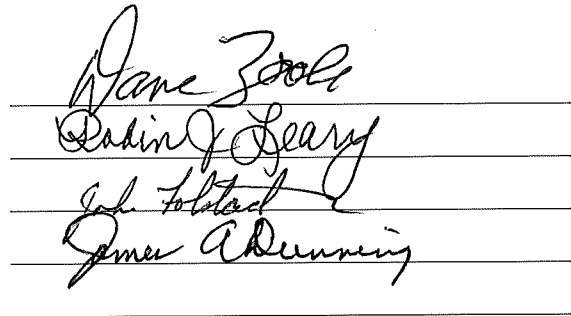 Dave Zook
Robin J Leary
John Folstad
James A Dunning